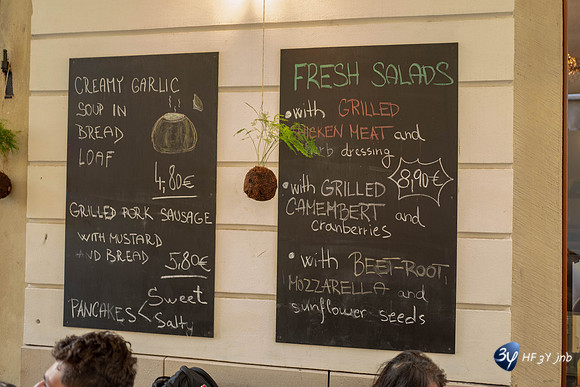 CREAMY GARLIC
SOUP IN
BREAD
LOAF
4,80€
GRILLED PORK SAUSAGE
WITH MUSTARD
AND BREAD
5,80€
PANCAKES
Sweet
Salty
FRESH SALADS
• with GRILLED
CHICKEN MEAT and
dressing
8,90€
• with GRILLED
CAMEMBERT and
cranberries
• with BEET-ROOT,
MOZZARELLA and
sunflower seeds
3y HF 3Y jnb